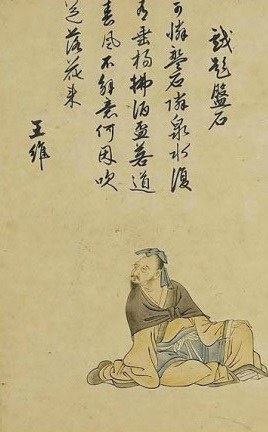 戯題盤石
可憐盤石隣泉水復
有垂楊拂酒盃若道
春風不解意何因吹
送落花来
王維